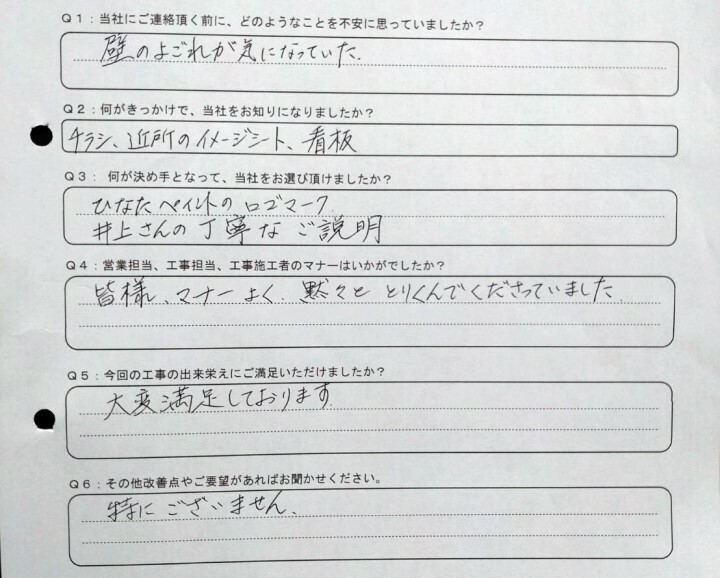 Q1：当社にご連絡頂く前に、どのようなことを不安に思っていましたか？
壁のよごれが気になっていた.
Q2：何がきっかけで、当社をお知りになりましたか？
チラシ、近所のイメージシート、看板
Q3： 何が決め手となって、当社をお選び頂けましたか？
ひなたペイントのロゴマーク.
井上さんの丁寧なご説明
Q4：営業担当、工事担当、工事施工者のマナーはいかがでしたか？
皆様、マナーよく、黙々ととりくんでくださっていました.
Q5：今回の工事の出来栄えにご満足いただけましたか？
大変満足しております.
Q6：その他改善点やご要望があればお聞かせください。
特にございません、